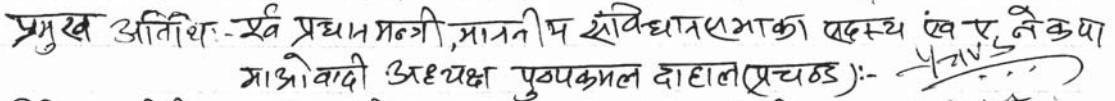 प्रमुख अतिथिः- पूर्व प्रधानमन्त्री, माननीय संविधानसभाका सदस्य एंव ए, नेकपा
माओवादी अध्यक्ष पुष्पकमल दाहाल (प्रचण्ड):-